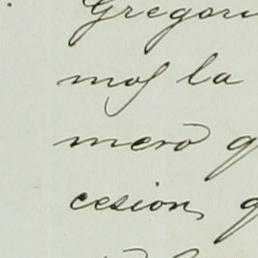 Gregori
mos la
mero q
cesion, q